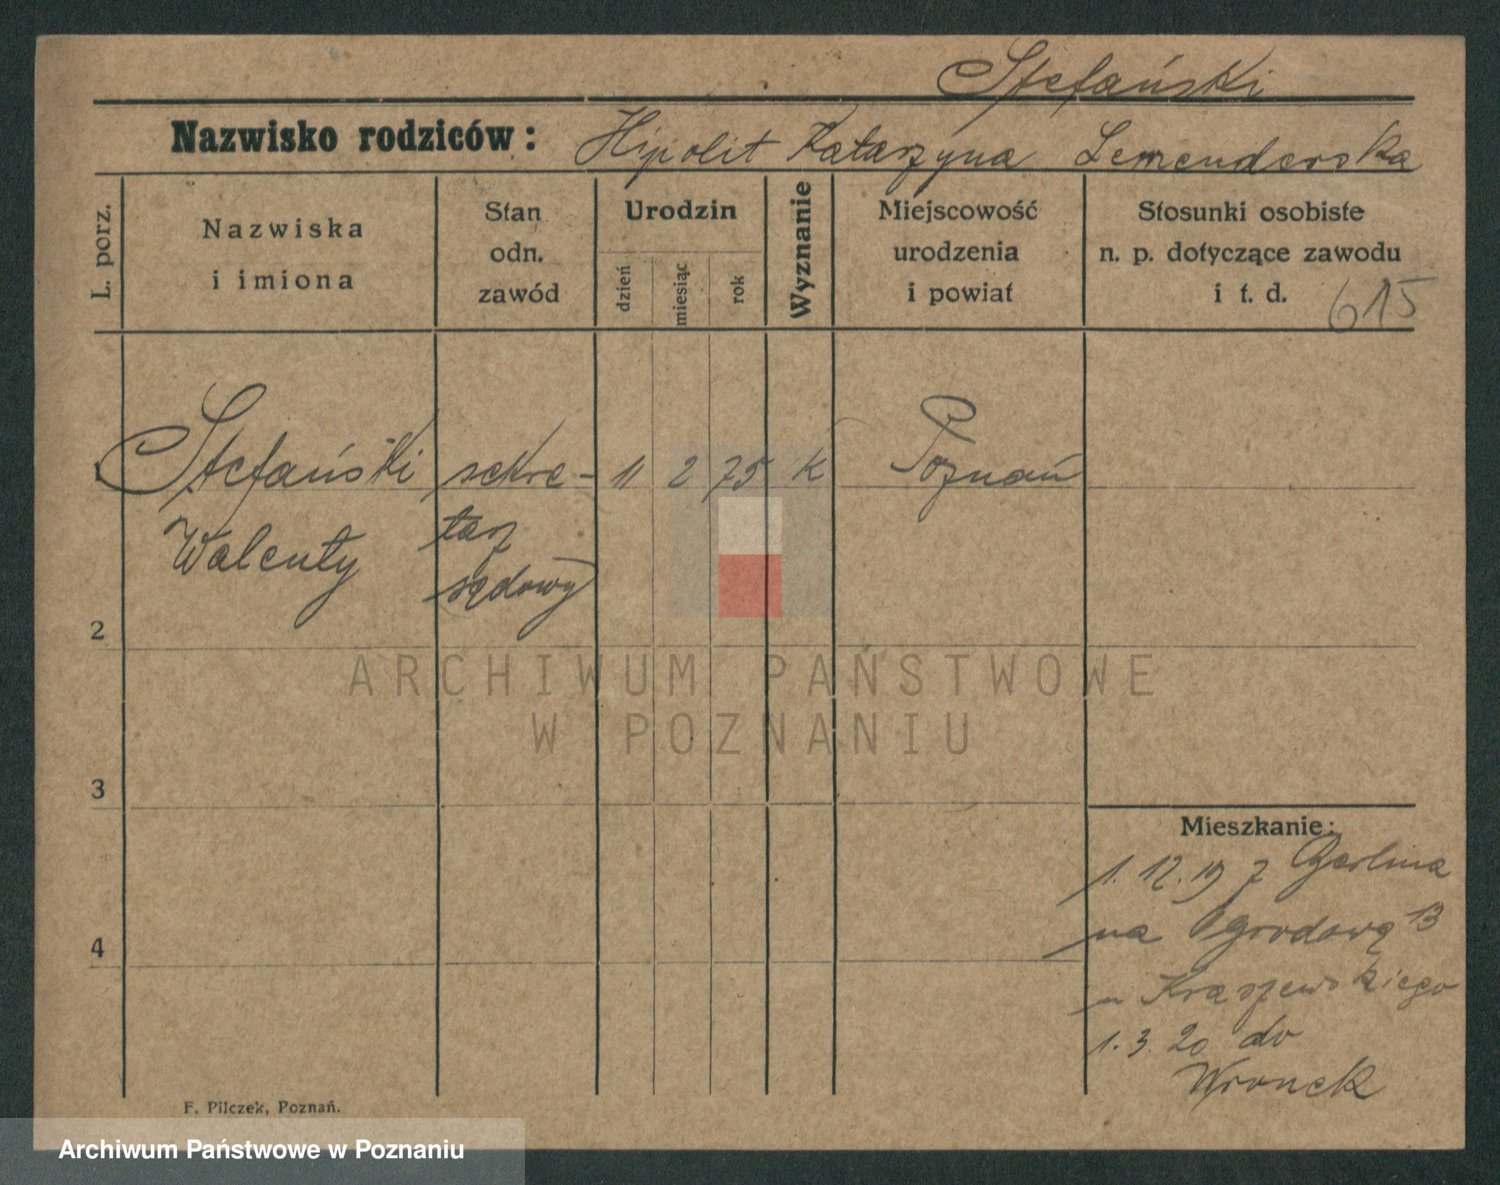 Stefański
Nazwisko rodziców: Hipolit Katarzyna Lemenderska
L. porz.
Nazwiska
i imiona
Stan
odn.
zawód
Urodzin
dzień
miesiąc
rok
Wyznanie
Miejscowość
urodzenia
i powiat
Stosunki osobiste
n. p. dotyczące zawodu
i t. d.
615
1 Stefański sekre- 11 2 75 K Poznań
Walenty tarz
sędowy
2
3
4
ARCHIWUM PAŃSTWOWE
W POZNANIU
Mieszkanie:
1. 12. 19 z Berlina
na Ogrodową 13
u Kraszewskiego
1. 3. 20 do
Wronek
F. Pilczek, Poznań.
Archiwum Państwowe w Poznaniu